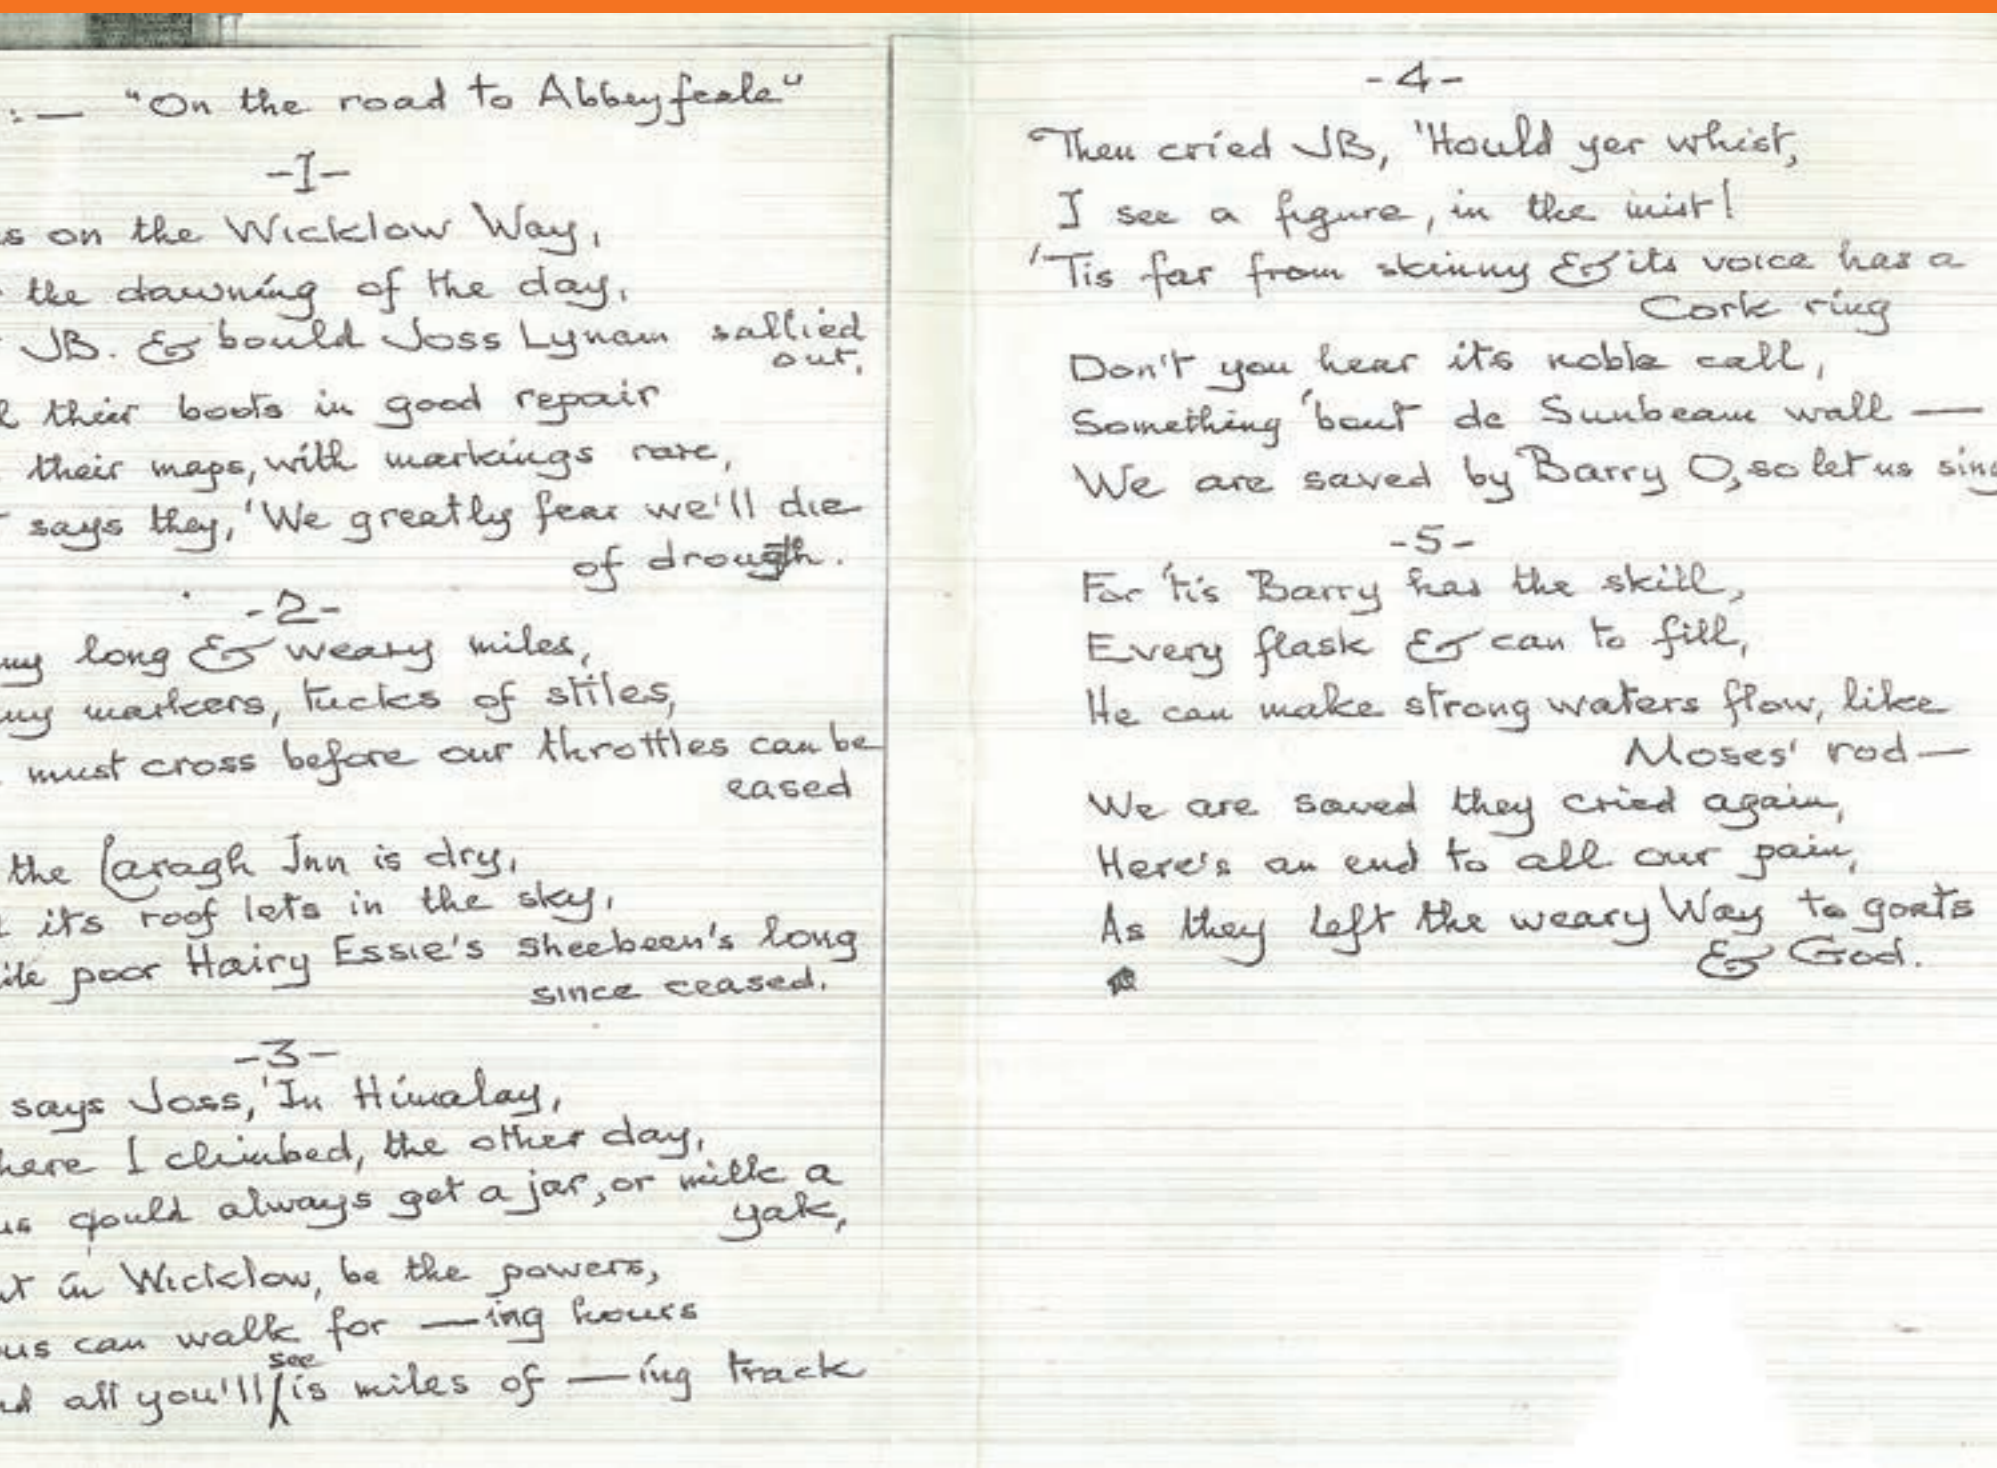 :— "On the road to Abbeyfeale"
-I-
s on the Wicklow Way,
the dawning of the day,
JB. & bould Joss Lynam sallied
out,
their boots in good repair
their maps, with markings rare,
says they, 'We greatly fear we'll die
of drougth.
-2-
ny long & weary miles,
ny markers, tucks of stiles,
must cross before our throttles can be
eased
the Laragh Inn is dry,
its roof lets in the sky,
ile poor Hairy Essie's sheebeen's long
since ceased.
-3-
says Joss, 'In Himalay,
here I climbed, the other day,
us could always get a jar, or milk a
yak,
ut in Wicklow, be the powers,
ous can walk for —ing hours
nd all you'll see is miles of —ing track
-4-
Then cried JB, 'Hould yer whist,
I see a figure, in the mist!
'Tis far from skinny & its voice has a
Cork ring
Don't you hear its noble call,
Something 'bout de Sunbeam wall —
We are saved by Barry O, so let us sing
-5-
For 'tis Barry has the skill,
Every flask & can to fill,
He can make strong waters flow, like
Moses' rod —
We are saved they cried again,
Here's an end to all our pain,
As they left the weary Way to goats
& God.